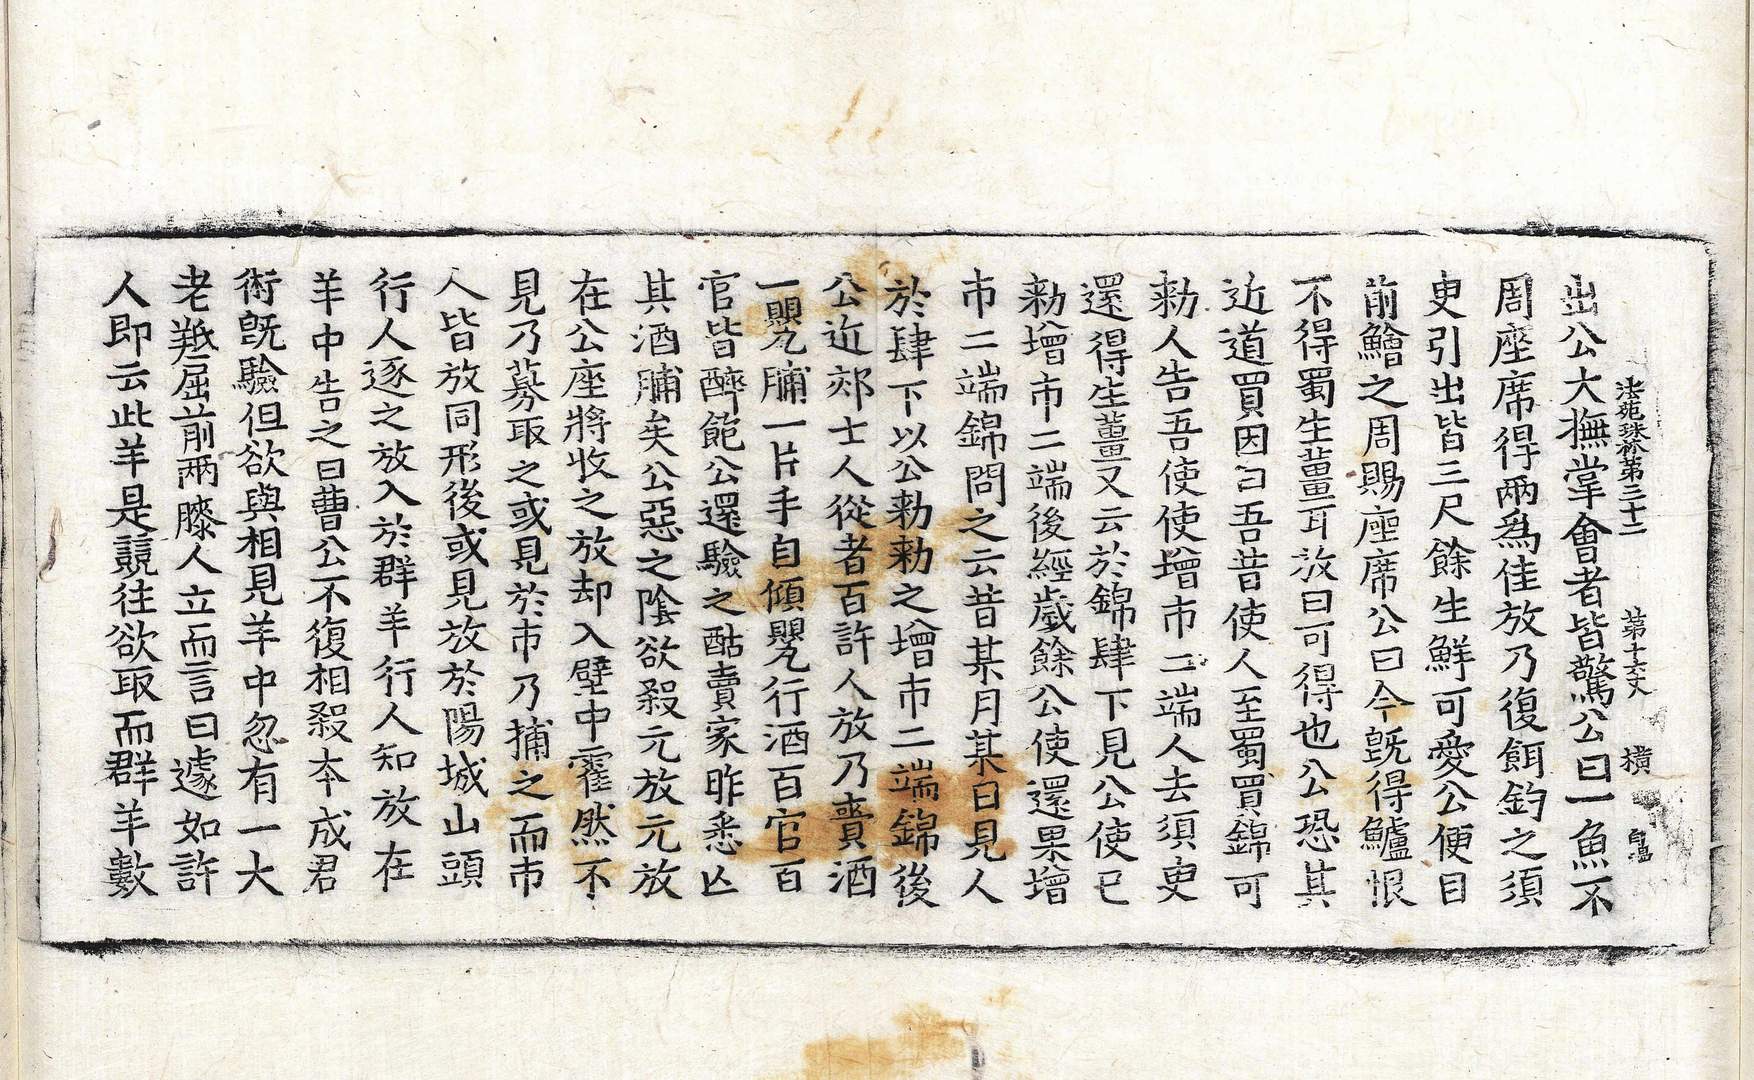 法苑珠林第三十二 第十六丈 橫
出公大撫掌會者皆驚公曰一魚不
周座席得兩爲佳放乃復餌釣之須
臾引出皆三尺餘生鮮可愛公便目
前鱠之周賜座席公曰今旣得鱸恨
不得蜀生薑耳放曰可得也公恐其
近道買因曰吾昔使人至蜀買錦可
勑人告吾使使增市二端人去須臾
還得生薑又云於錦肆下見公使已
勑增市二端後經歲餘公使還果增
市二端錦問之云昔某月某日見人
於肆下以公勑勑之增市二端錦後
公近郊士人從者百許人放乃賷酒
一甖脯一片手自傾甖行酒百官百
官皆醉飽公還驗之酤賣家昨悉亾
其酒脯矣公惡之陰欲殺元放元放
在公座將收之放却入壁中霍然不
見乃募取之或見於市乃捕之而市
人皆放同形後或見放於陽城山頭
行人逐之放入於群羊行人知放在
羊中告之曰曹公不復相殺夲成君
術旣驗但欲與相見羊中忽有一大
老羝屈前兩膝人立而言曰遽如許
人即云此羊是競往欲取而群羊數